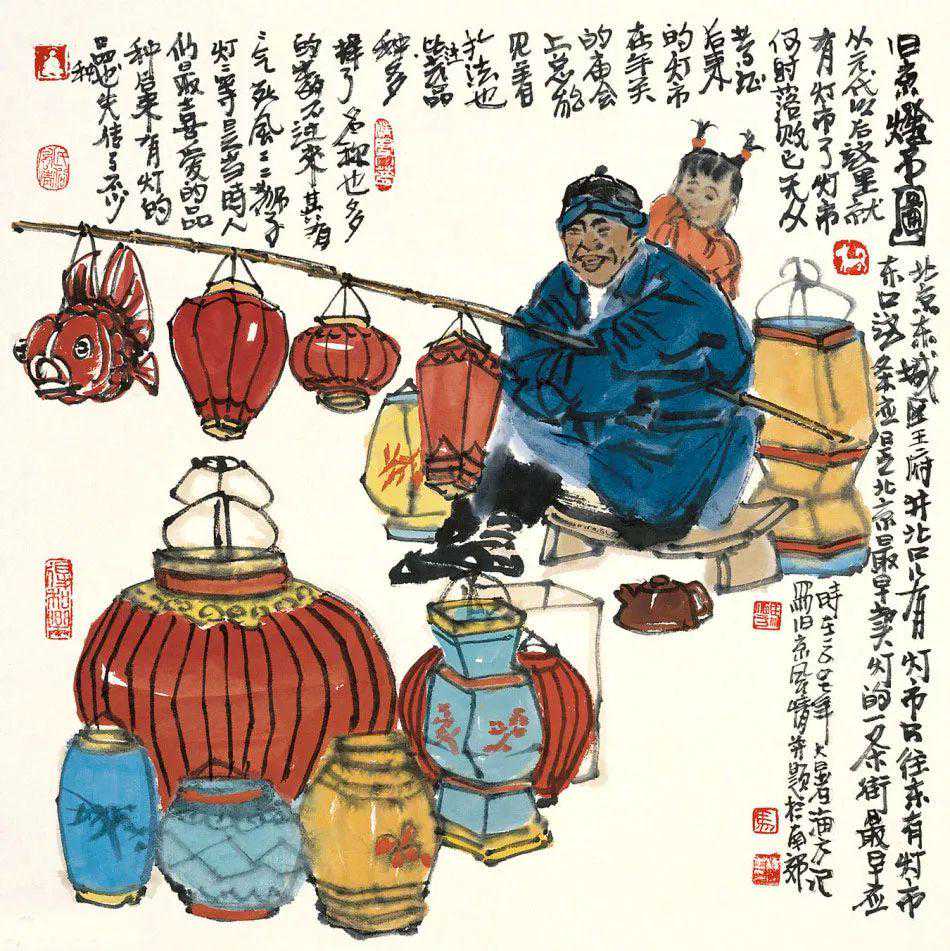 旧京燈市圖
北京东城区王府井北口有灯市口往东有灯市
东口这条应是北京最早卖灯的一条街最早应
从元代以后这里就
有灯市了灯市
何时落败已无从
考证
后来
的灯市
在年关
的庙会
上总能
见着有
扎法也
品
种多
样了名称也多
的数不过来其有
气死风 狮子
灯 等是当时人
们最喜爱的品
种后来有灯的
品也失传了不少
种
时在 年大暑 海方记
旧京风情并题于南郊